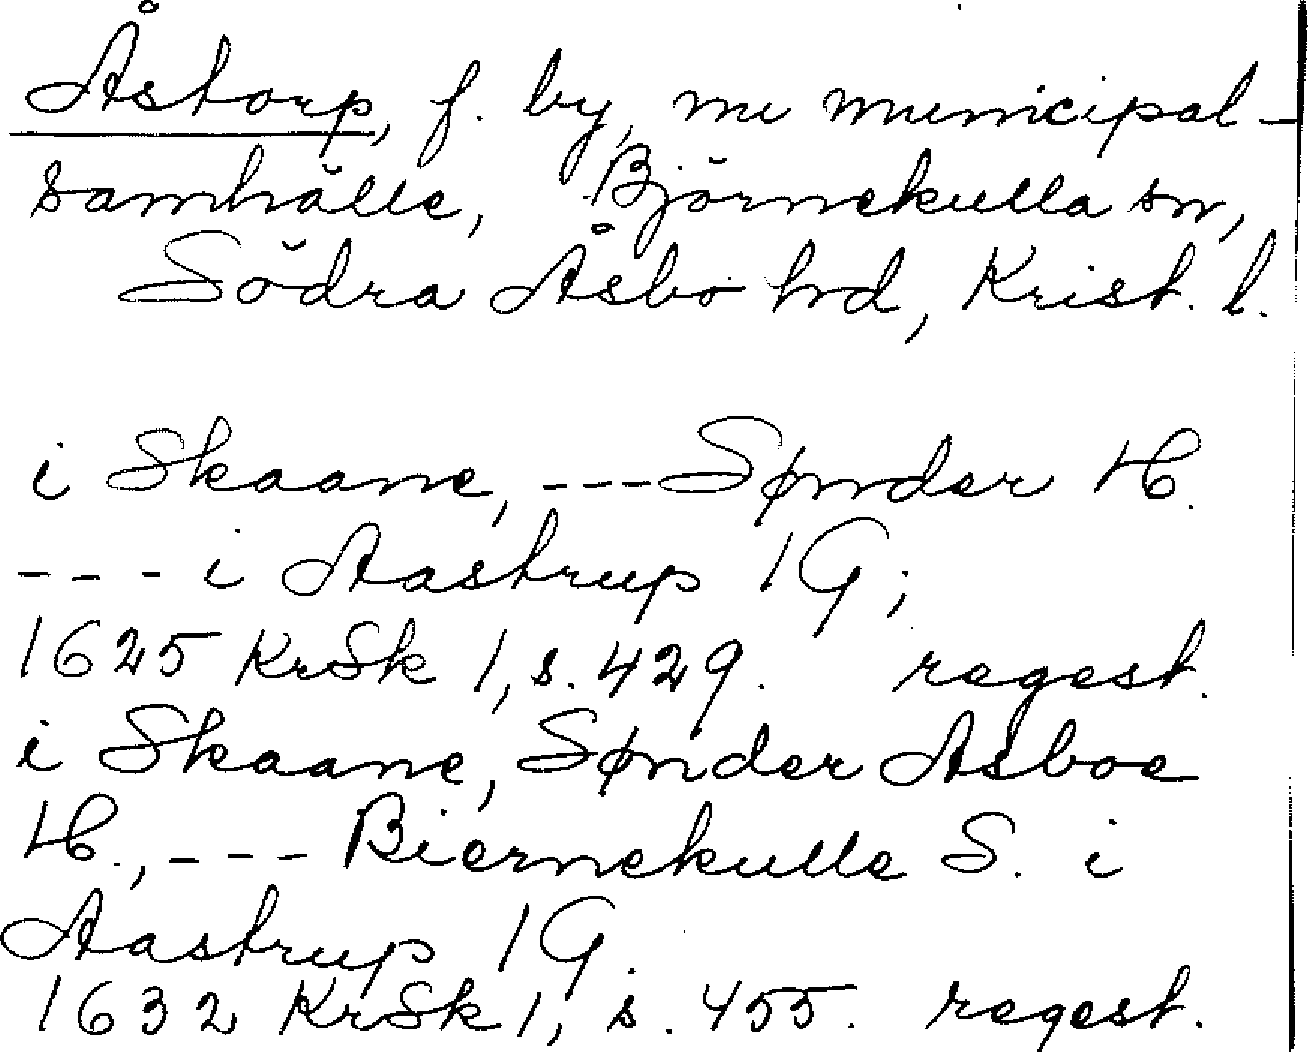 Åstorp, f. by, nu municipal-
samhälle, Björnekulla sn,
Södra Åsbo hd, Krist. l.
i Skaane, --- Sønder H.
--- i Aastrup 1 G;
1625 KrSk 1, s. 429. regest.
i Skaane, Sønder Asboe
H., --- Biernekulle S. i
Aastrup 1 G.
1632 KrSk 1, s. 455. regest.